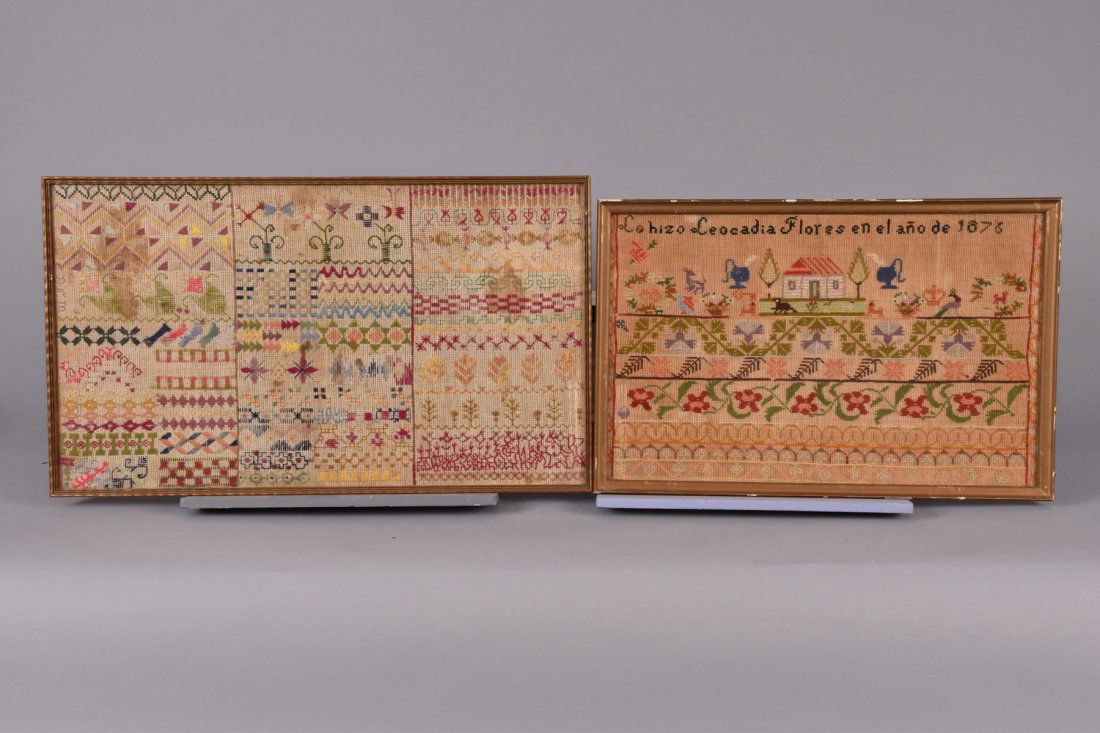 Lo hizo Leocadia Flores en el año de 1876